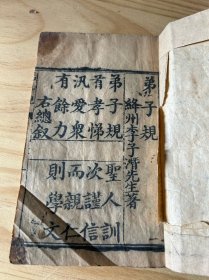 弟子規
絳州李子潛先生著
弟子規 聖人訓
首孝悌 次謹信
汎愛衆 而親仁
有餘力 則學文
右總敘